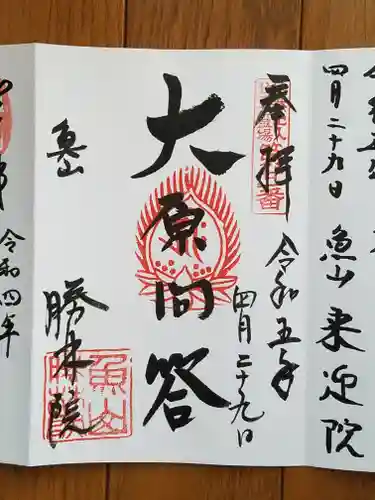 四月二十九日 魚山 来迎院
奉拝
令和五年
四月二十九日
大原問答
魚山
勝林院
魚山
令和四年